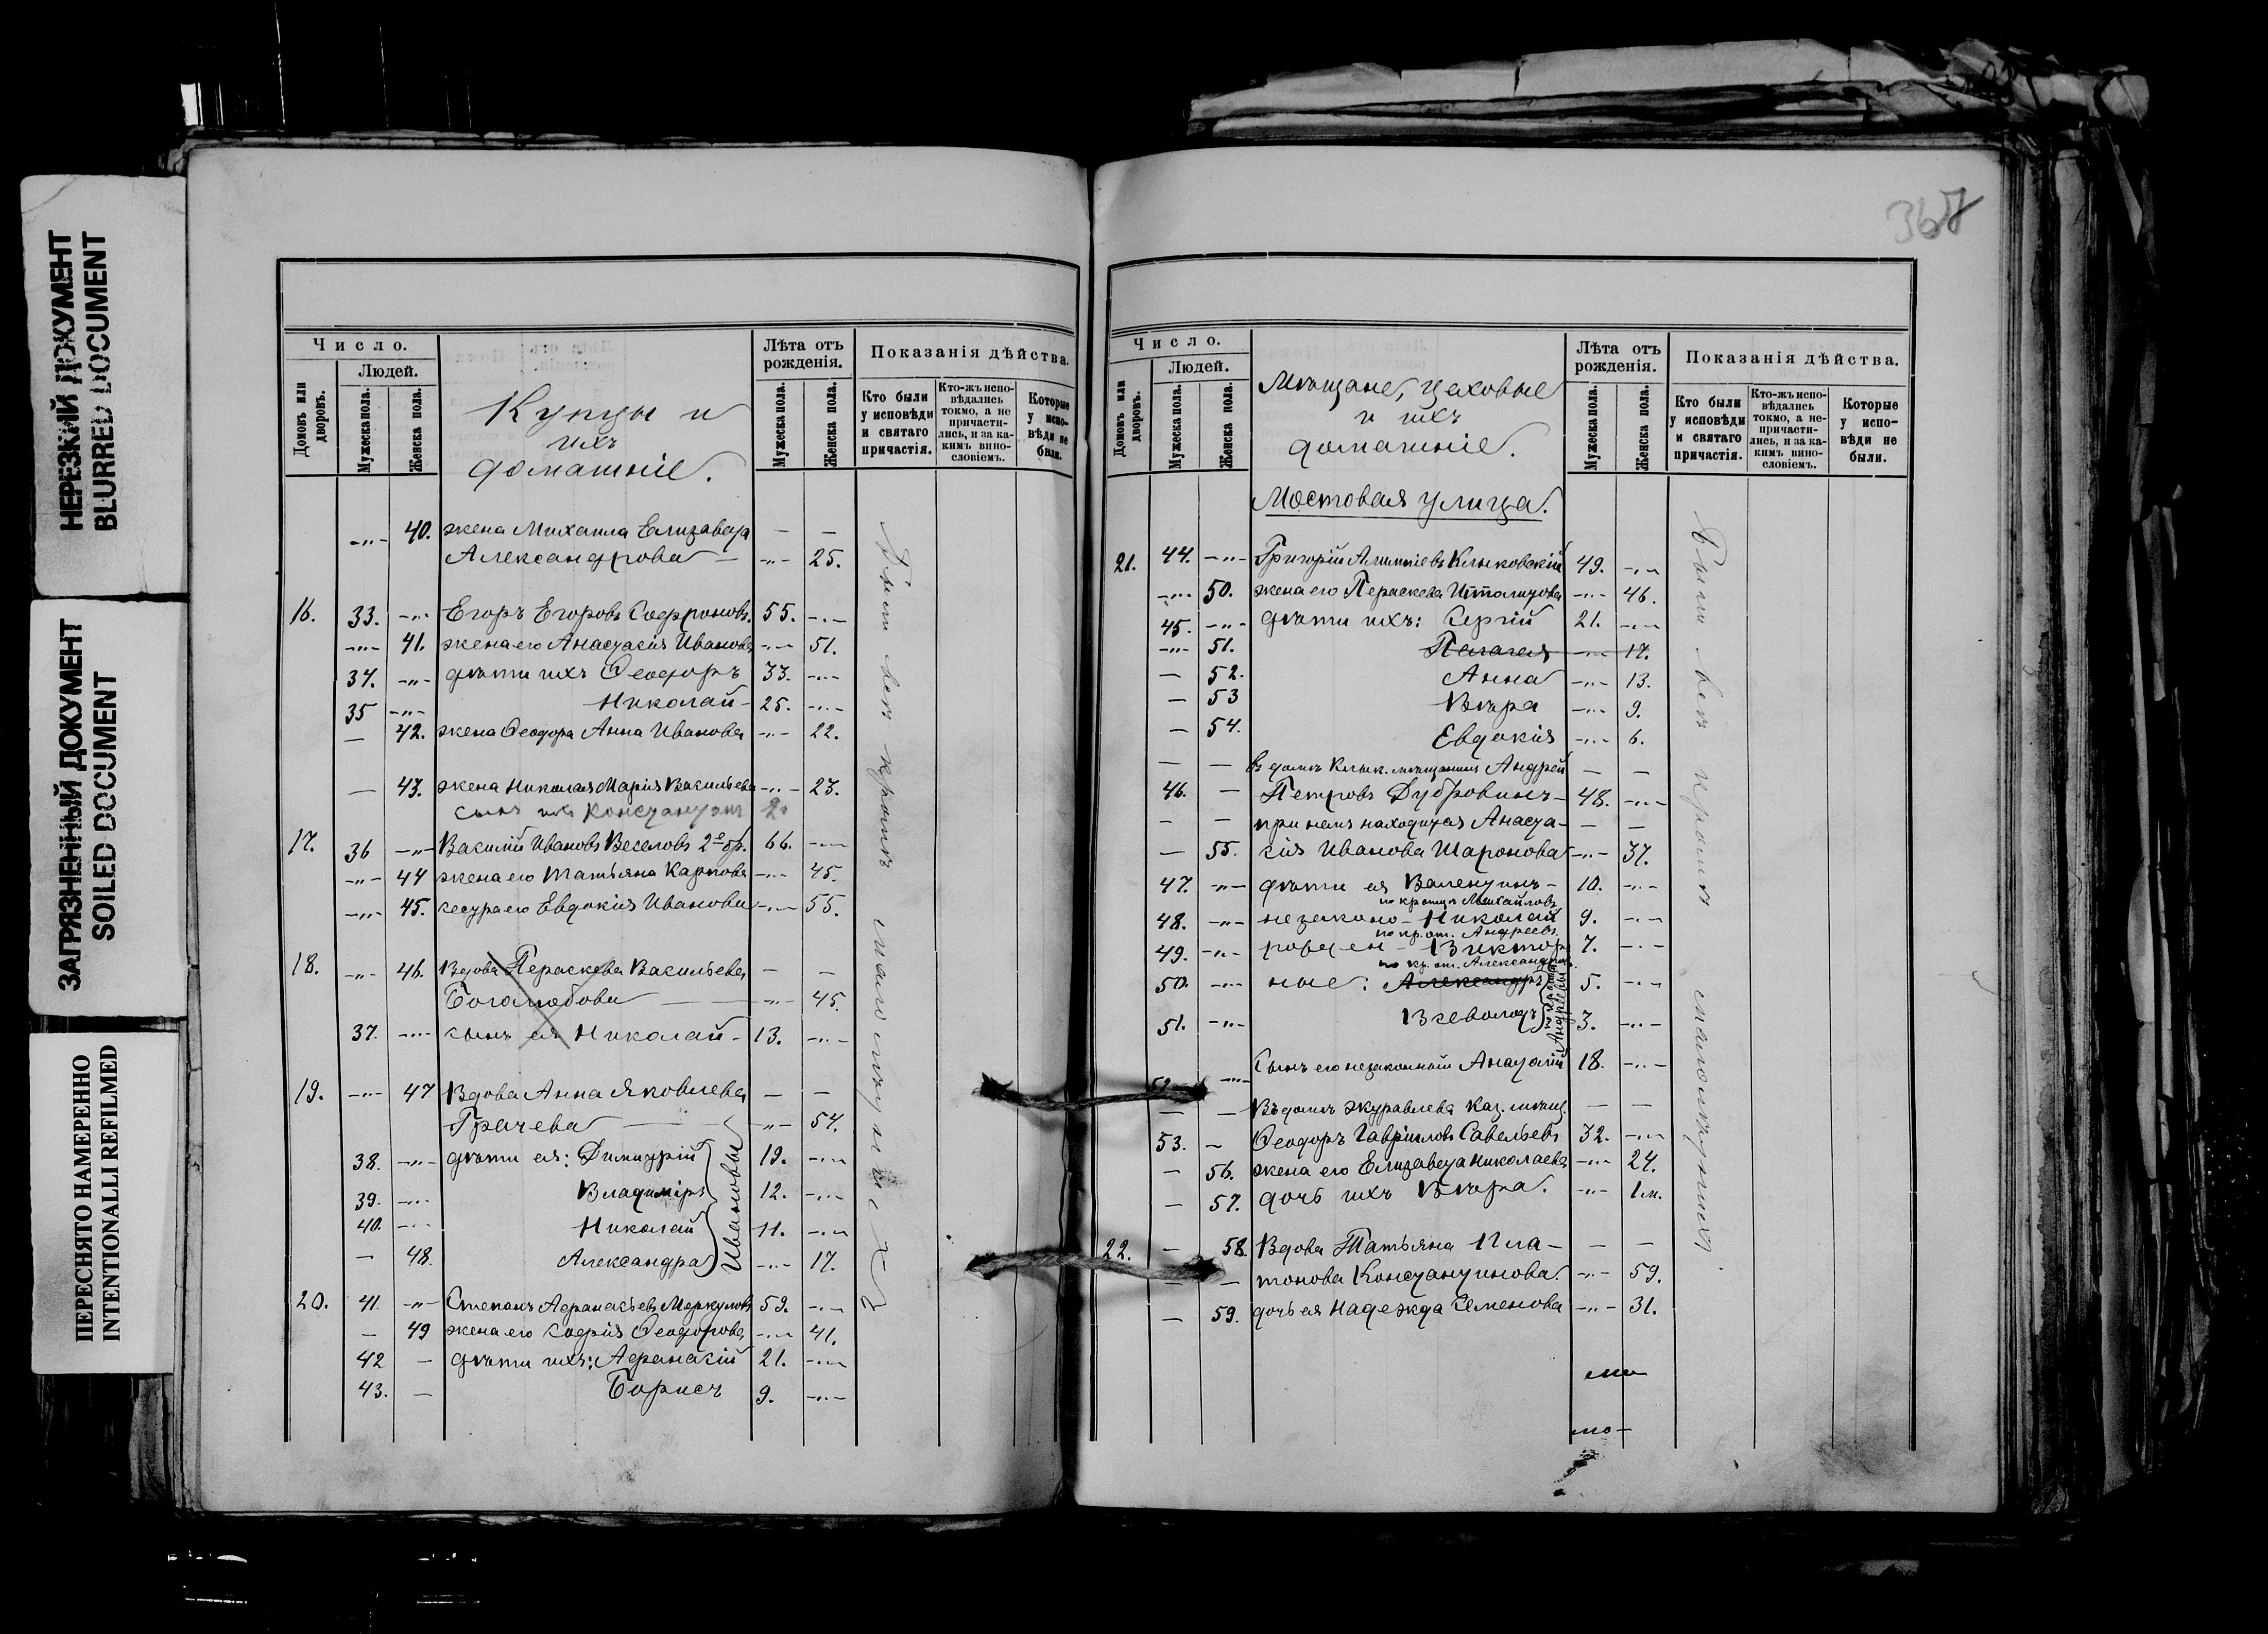 НЕРЕЗКИЙ ДОКУМЕНТ
BLURRED DOCUMENT
ЗАГРЯЗНЕННЫЙ ДОКУМЕНТ
SOILED DOCUMENT
ПЕРЕСНЯТО НАМЕРЕННО
INTENTIONALLI REFILMED
Число.
Людей.
Домовъ или дворовъ.
Мужеска пола.
Женска пола.
Купцы и
ихъ
домашніе.
Лѣта отъ рожденія.
Мужеска пола.
Женска пола.
Показанія дѣйства.
Кто были у исповѣди и святаго причастія.
Кто-жъ исповѣдались токмо, а не причастились, и за какимъ винословіемъ.
Которые у исповѣди не были.
-"- 40. жена Михаила Елизавета — —
Александрова — -"- 25.
16. 33. -"- Егоръ Егоровъ Софроновъ. 55. -"-
-"- 41. жена его Анастасія Иванова -"- 51.
34. -"- дѣти ихъ Ѳеодоръ 33. -"-
35 -"- Николай - 25. -"-
— 42. жена Ѳеодора Анна Иванова -"- 22.
— 43. жена Николая Марія Васильева -"- 23.
сынъ ихъ Константинъ 2.
17. 36 -"- Василій Ивановъ Веселовъ 2º бр. 66. -"-
-"- 44 жена его Татьяна Карпова -"- 45.
-"- 45. сестра его Евдокія Иванова -"- 55.
18. -"- 46. Вдова Параскева Васильева — —
Боголюбова — -"- 45.
37. -"- сынъ ея Николай - 13. -"-
19. -"- 47 Вдова Анна Яковлева — —
Грачева — -"- 54.
38. -"- дѣти ея: Димитрій 19. -"-
39. -"- Владиміръ 12. -"-
40. -"- Николай 11. -"-
— 48. Александра -"- 17.
Ивановы
20. 41. -"- Степанъ Аѳанасьевъ Меркуловъ 59. -"-
— 49 жена его Софія Ѳеодорова -"- 41.
42 — дѣти ихъ: Аѳанасій 21. -"-
43. — Борисъ 9. -"-
Были всѣ кромѣ малолѣтнихъ
367
Число.
Людей.
Домовъ или дворовъ.
Мужеска пола.
Женска пола.
Мѣщане, цеховые
и ихъ
домашніе.
Лѣта отъ рожденія.
Мужеска пола.
Женска пола.
Показанія дѣйства.
Кто были у исповѣди и святаго причастія.
Кто-жъ исповѣдались токмо, а не причастились, и за какимъ винословіемъ.
Которые у исповѣди не были.
Мостовая улица.
21. 44. -"- Григорій Алимпіевъ Клыковскій 49. -"-
-"- 50. жена его Параскева Ипполитова -"- 46.
45. -"- дѣти ихъ: Сергій 21. -"-
-"- 51. Пелагея -"- 17.
— 52. Анна -"- 13.
— 53 Вѣра -"- 9.
— 54. Евдокія -"- 6.
— — въ домѣ Клык. мѣщанинъ Андрей — —
46. — Петровъ Дубровинъ - 48. -"-
— — при немъ находится Анаста- — —
— 55. сія Иванова Шаронова -"- 37.
47. -"- дѣти ея Валентинъ - 10. -"-
по крестн. Михайловъ
48. -"- незаконо- Николай 9. -"-
по кр. от. Андреевъ.
49. -"- рожден- Викторъ 7. -"-
по кр. от. Александровъ.
50. -"- ные: Александръ 5. -"-
51. -"- Всеволодъ 3. -"-
Андреевы
52. -"- Сынъ его незаконный Анатолій 18. -"-
— — Въ домѣ Журавлева Каз. мѣщ. — —
53. — Ѳеодоръ Гавріиловъ Савельевъ 32. -"-
— 56. жена его Елизавета Николаева -"- 24.
— 57. дочь ихъ Вѣра. -"- 1 м.
22. — 58. Вдова Татьяна Пла- — —
— — тонова Константинова. -"- 59.
— 59. дочь ея Надежда Семенова -"- 31.
Были всѣ кромѣ малолѣтнихъ.